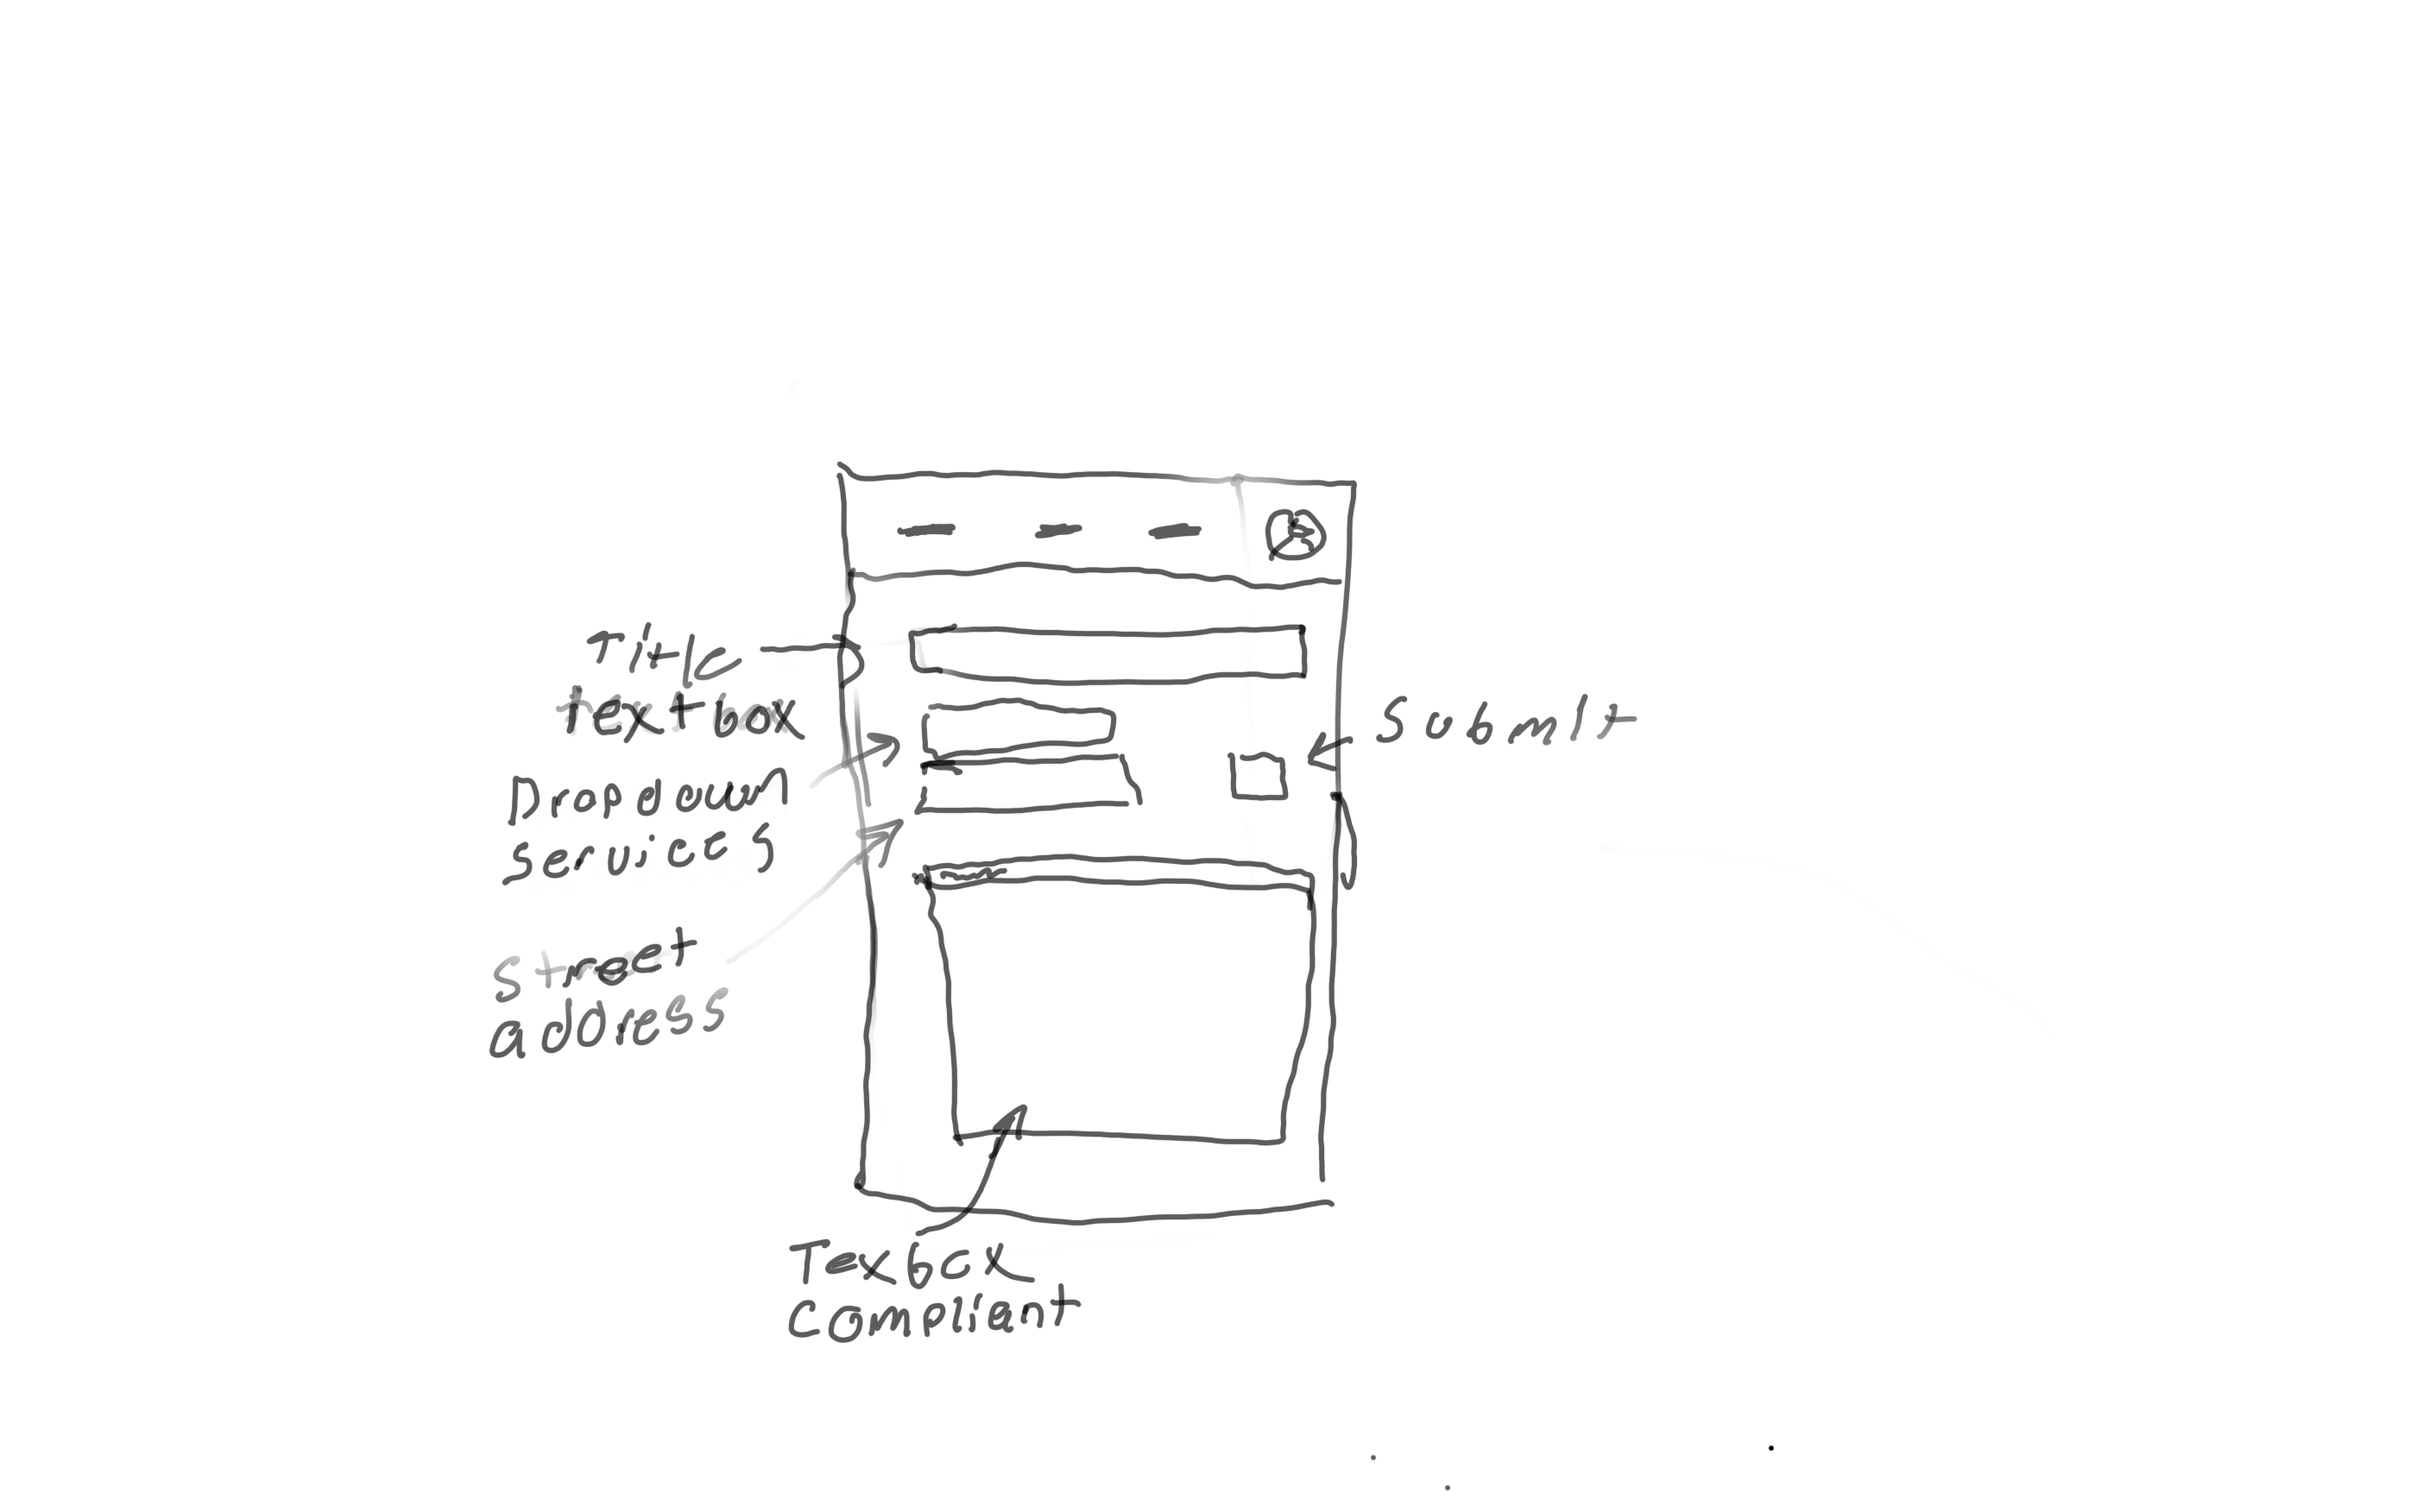 Title
textbox
Dropdown
services
Street
address
Submit
Texbox
Compliant